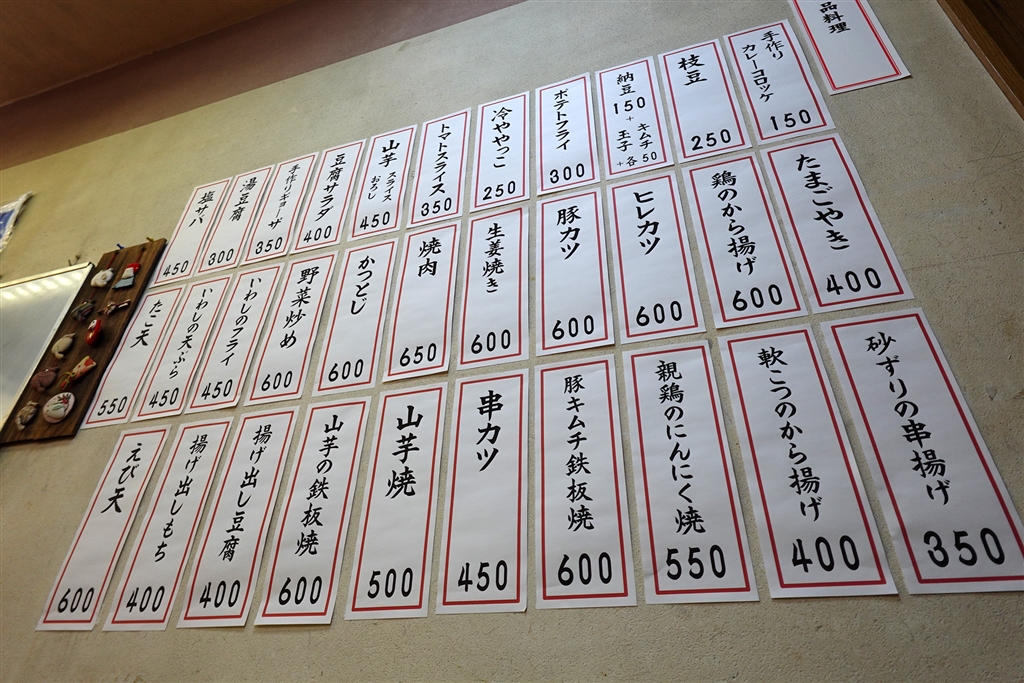 品料理
手作り
カレーコロッケ
150
枝豆
250
納豆
150
+
玉子 キムチ
+各50
ポテトフライ
300
冷ややっこ
250
トマトスライス
350
山芋
スライス
おろし
450
豆腐サラダ
400
手作りギョーザ
350
湯豆腐
300
塩サバ
450
たまごやき
400
鶏のから揚げ
600
ヒレカツ
600
豚カツ
600
生姜焼き
600
焼肉
650
かつとじ
600
野菜炒め
600
いわしのフライ
450
いわしの天ぷら
450
たこ天
550
砂ずりの串揚げ
350
軟こうのから揚げ
400
親鶏のにんにく焼
550
豚キムチ鉄板焼
600
串カツ
450
山芋焼
500
山芋の鉄板焼
600
揚げ出し豆腐
400
揚げ出しもち
400
えび天
600